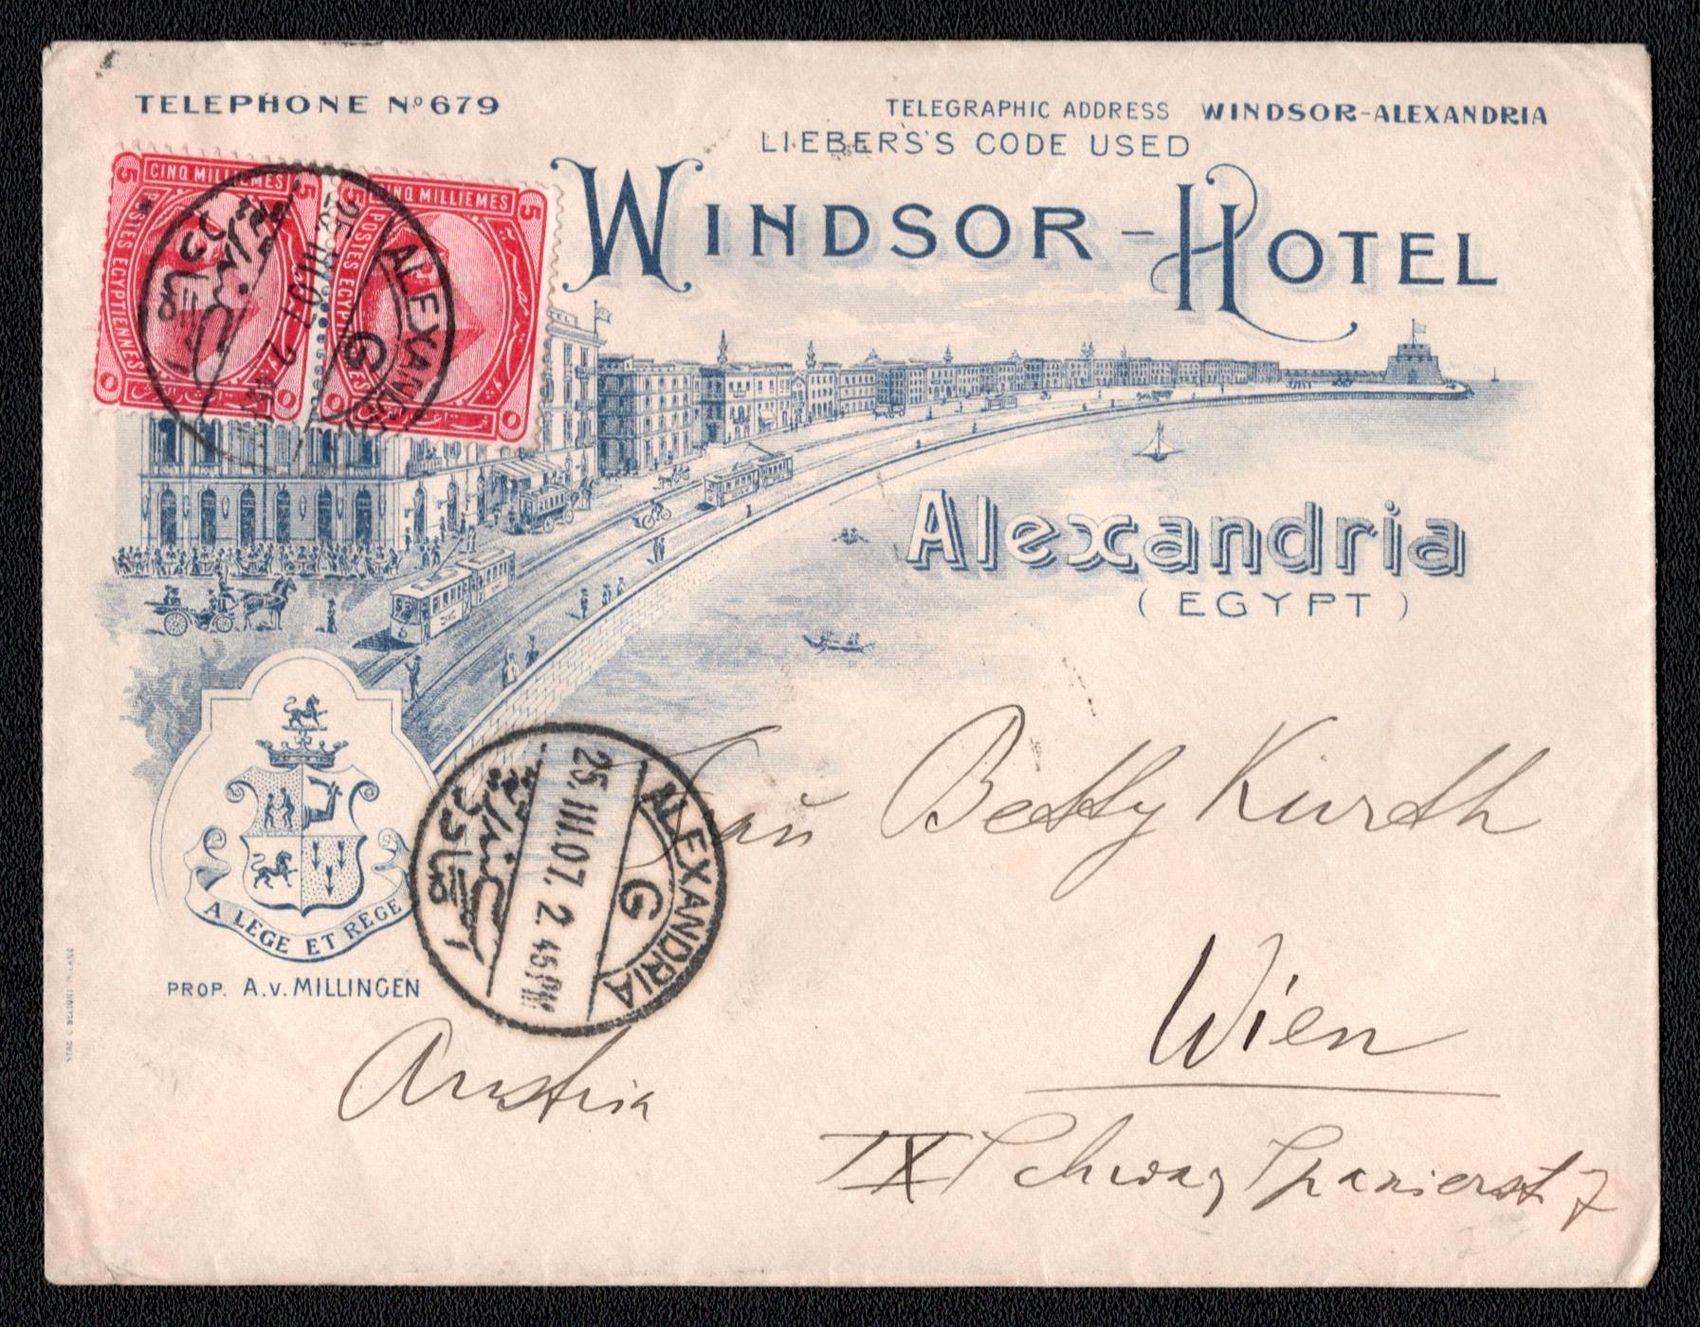 TELEPHONE Nº 679
TELEGRAPHIC ADDRESS WINDSOR-ALEXANDRIA
LIEBERS'S CODE USED
WINDSOR-HOTEL
5 CINQ MILLIEMES 5
POSTES EGYPTIENNES
5 CINQ MILLIEMES 5
POSTES EGYPTIENNES
ALEXANDRIA
G
25.III.07.2
Alexandria
(EGYPT)
A LEGE ET REGE
PROP. A.v. MILLINGEN
ALEXANDRIA
G
25.III.07.2.45 PM
Frau Betty Kurth
Wien
Austria
IX Schwarzspanierst 7